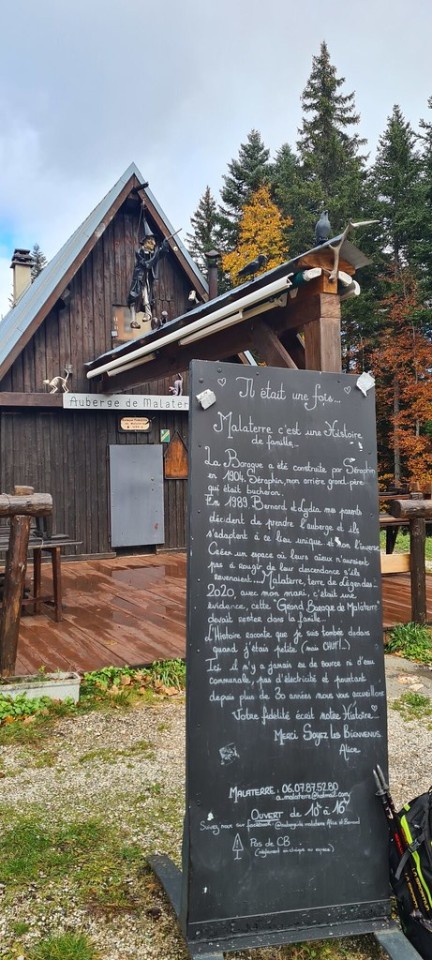 Auberge de Malater
♡ Il était une fois... ♡
Malaterre c'est une Histoire
de famille...
La Baraque a été construite par Séraphin
en 1904. Séraphin, mon arrière grand-père
qui était bucheron.
En 1989, Bernard et Lydia mes parents
décident de prendre l'auberge et ils
s'adaptent à ce lieu unique et non l'inverse
Créer un espace où leurs aïeux n'auraient
pas à rougir de leur descendance s'ils
revenaient... Malaterre, terre de Légendes!
2020, avec mon mari, c'était une
évidence, cette "Grand Baraque de Malaterre"
devait rester dans la famille.
L'Histoire raconte que je suis tombée dedans
quand j'étais petite (moi OUH!!..)
Ici il n'y a jamais eu de source ni d'eau
communale, pas d'électricité et pourtant
depuis plus de 30 années nous vous accueillons
Votre fidélité écrit notre Histoire ♡
Merci Soyez les Bienvenus
Alice
MALATERRE : 06.07.87.52.80
a.malaterre@hotmail.com
OUVERT de 10h à 16h
Suivez nous sur facebook @auberge de malaterre Alice et Bernard
Pas de CB
(règlement en chèque ou espèce)